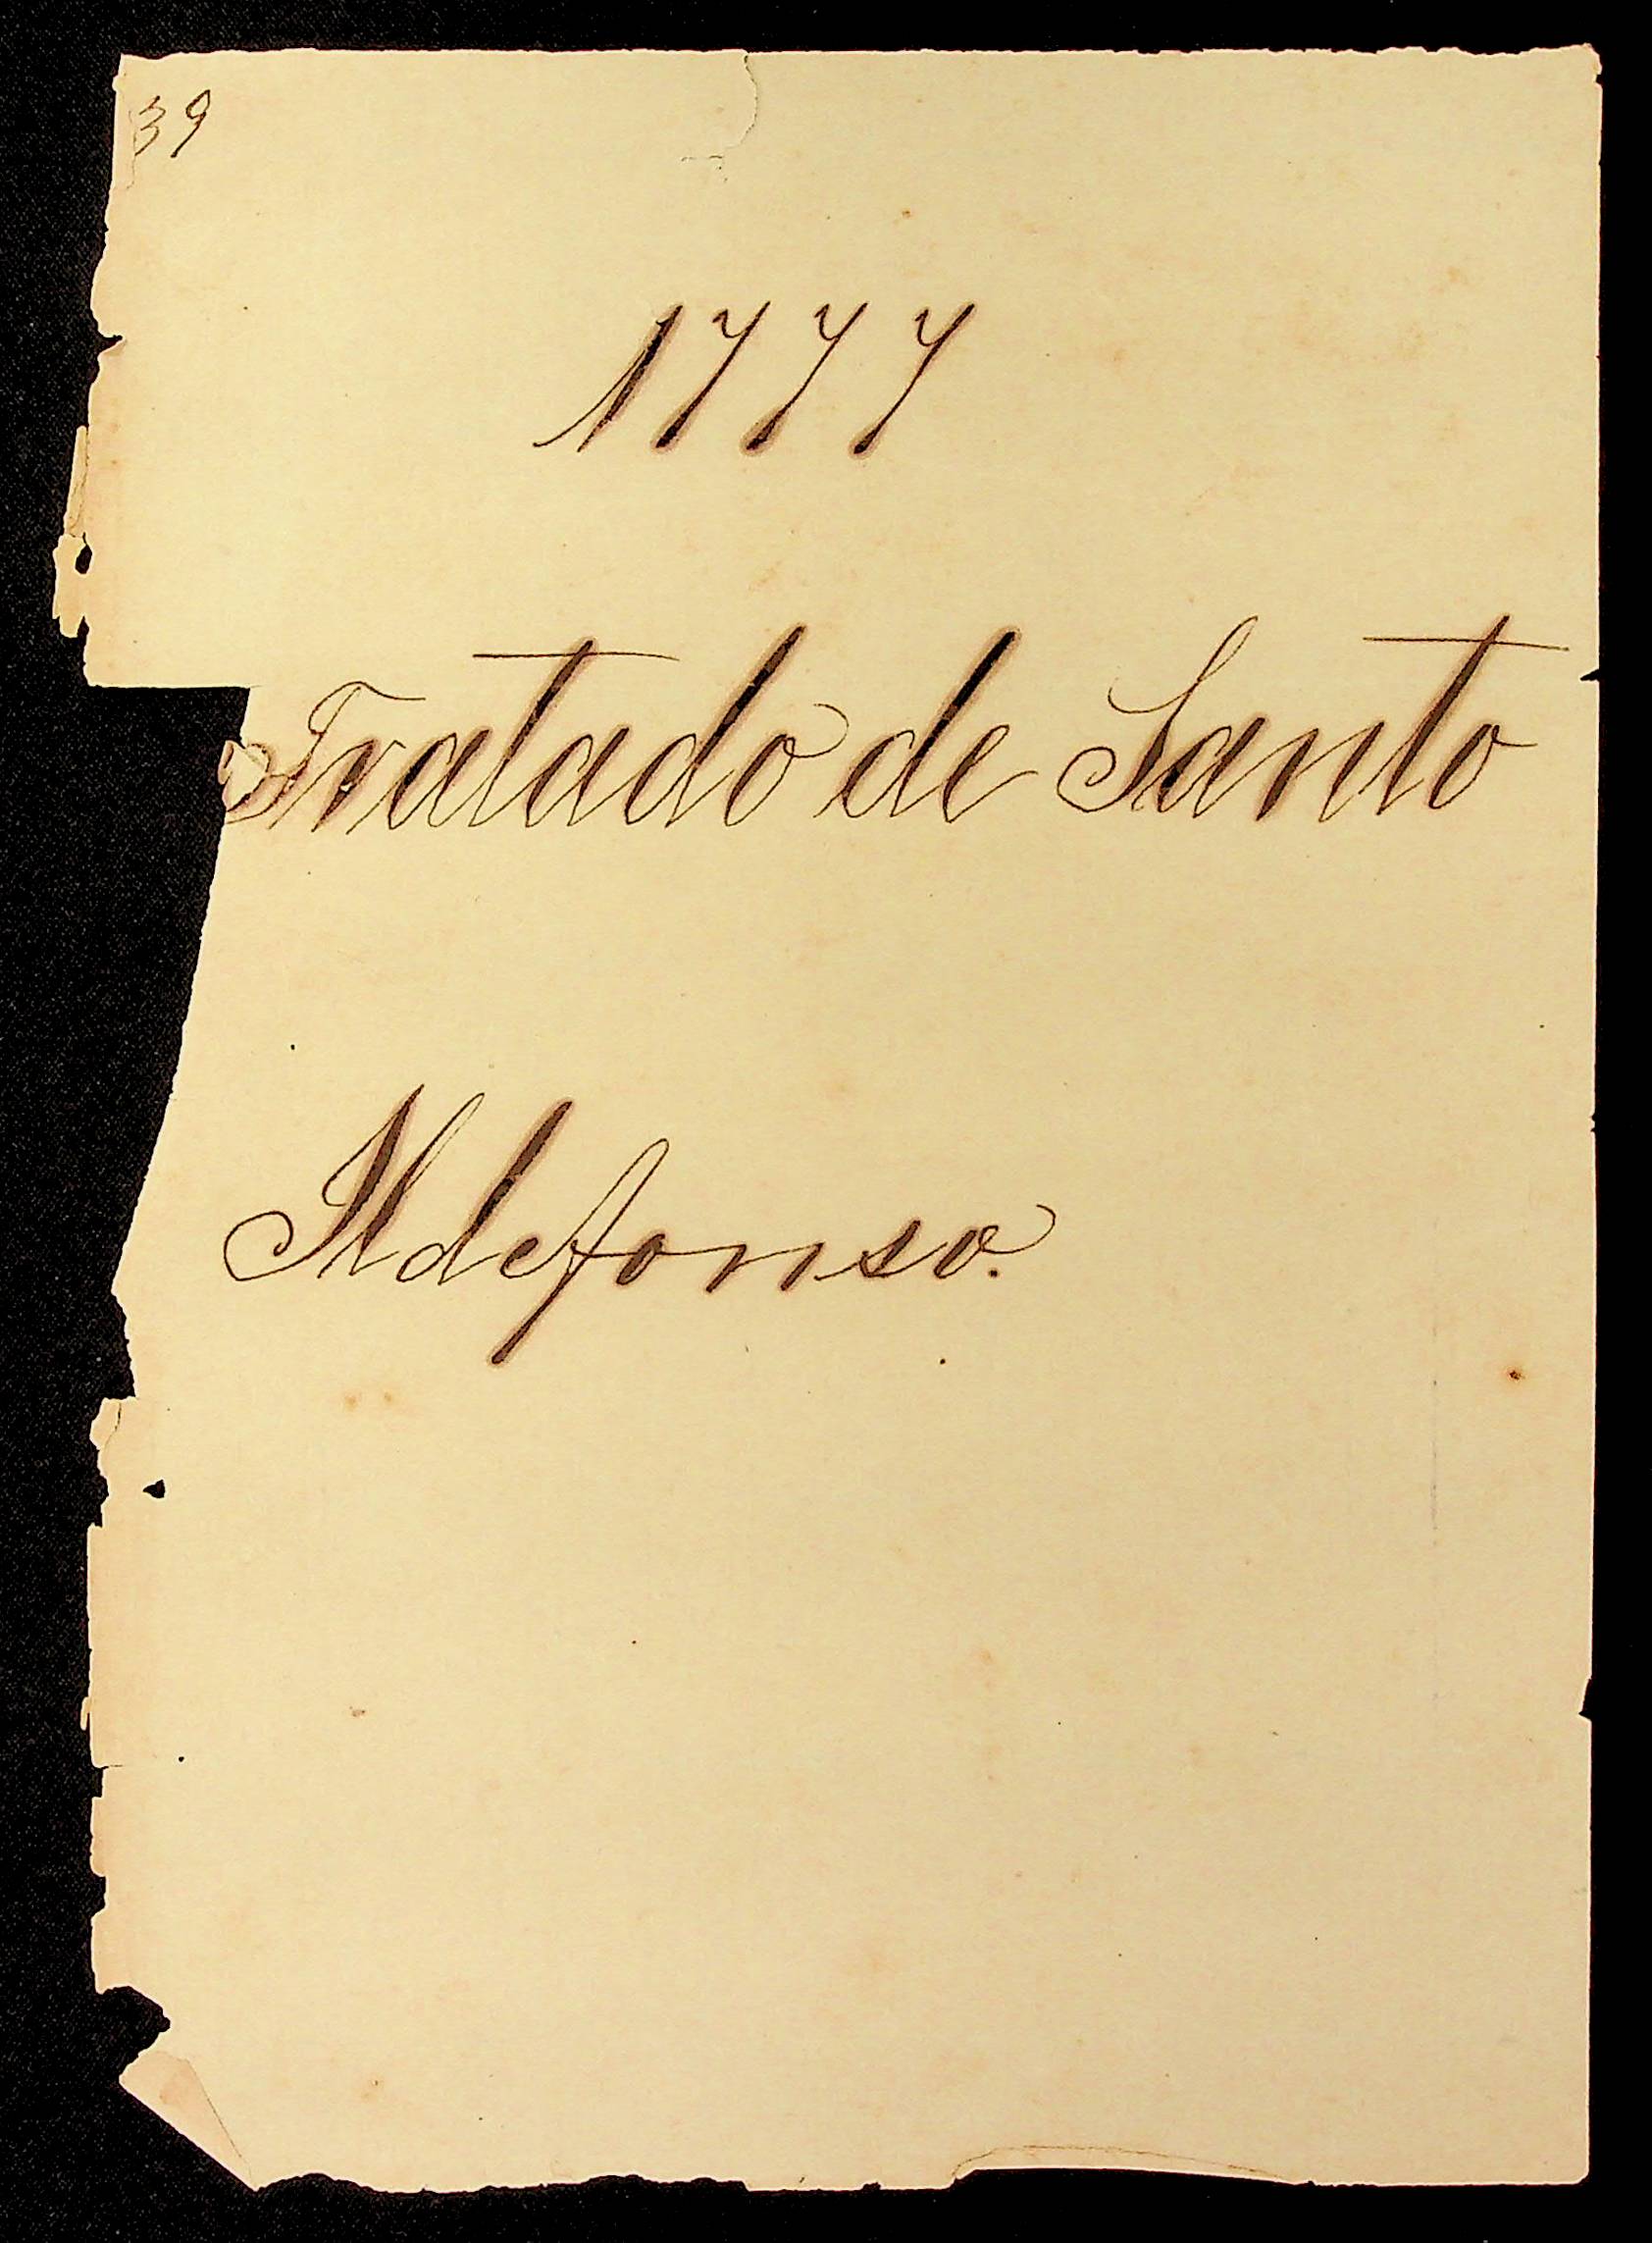 39
1777
Tratado de Santo
Ildefonso.